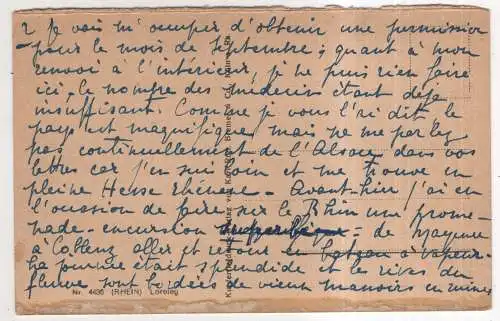 2 Je vais m'occuper d'obtenir une permission
pour le mois de Septembre; quant à mon
renvoi à l'intérieur, je ne puis rien faire
ici, le nombre des médecins étant déjà
insuffisant. Comme je vous l'ai dit le
pays est magnifique mais ne me parlez
pas continuellement de l'Alsace dans vos
lettres car j'en suis loin et me trouve en
pleine Hesse Rhénane - Avant-hier j'ai eu
l'occasion de faire sur le Rhin une prome-
nade-excursion - de Mayence
à Coblenz aller et retour en bateau à vapeur-
La journée était splendide et les rives du
fleuve sont bordées de vieux manoirs en ruines
Nr. 4435 (RHEIN) Loreley